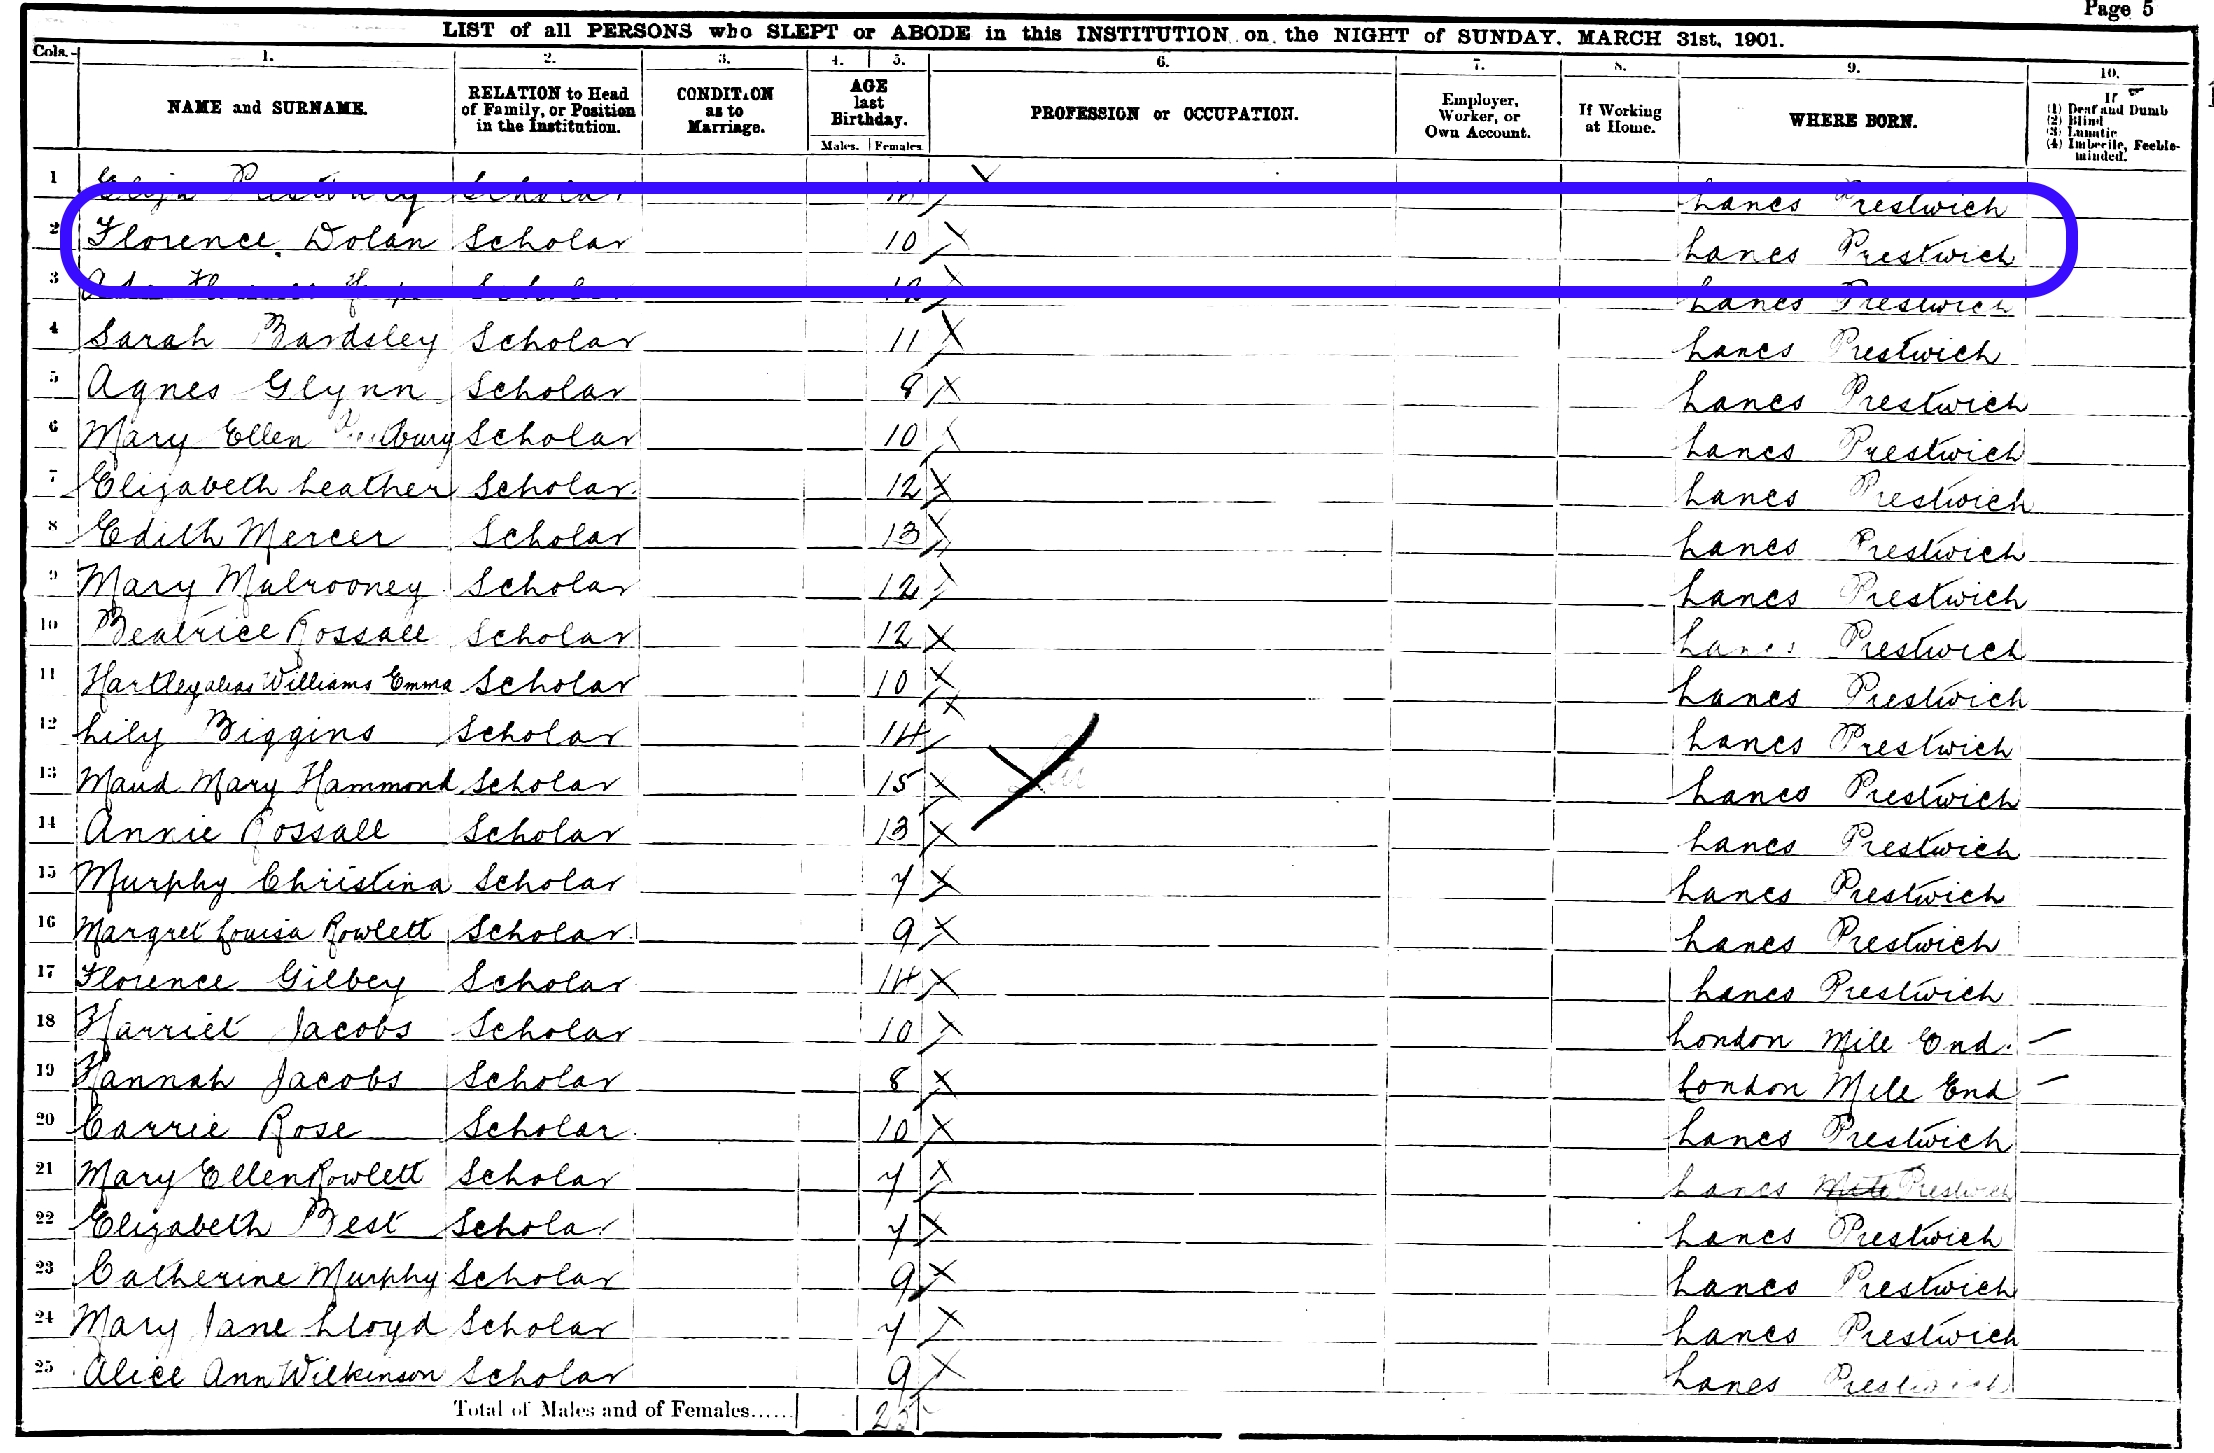 Page 5
LIST of all PERSONS who SLEPT or ABODE in this INSTITUTION on the NIGHT of SUNDAY, MARCH 31st, 1901.
Cols. 1. 2. 3. 4. 5. 6. 7. 8. 9. 10.
NAME and SURNAME. RELATION to Head of Family, or Position in the Institution. CONDITION as to Marriage. AGE last Birthday. Males. Females. PROFESSION or OCCUPATION. Employer, Worker, or Own Account. If Working at Home. WHERE BORN. If (1) Deaf and Dumb (2) Blind (3) Lunatic (4) Imbecile, Feeble-minded.
1 Scholar Lancs Prestwich
2 Florence Dolan Scholar 10 Lancs Prestwich
3 Scholar Lancs Prestwich
4 Sarah Bardsley Scholar 11 Lancs Prestwich
5 Agnes Glynn Scholar 8 Lancs Prestwich
6 Mary Ellen Scholar 10 Lancs Prestwich
7 Elizabeth Leather Scholar 12 Lancs Prestwich
8 Edith Mercer Scholar 13 Lancs Prestwich
9 Mary Mulrooney Scholar 12 Lancs Prestwich
10 Beatrice Rossall Scholar 12 Lancs Prestwich
11 Hartley alias Williams Emma Scholar 10 Lancs Prestwich
12 Lily Biggins Scholar 14 Lancs Prestwich
13 Maud Mary Hammond Scholar 15 Lancs Prestwich
14 Annie Rossall Scholar 13 Lancs Prestwich
15 Murphy Christina Scholar 7 Lancs Prestwich
16 Margret Louisa Rowlett Scholar 9 Lancs Prestwich
17 Florence Gilbey Scholar 14 Lancs Prestwich
18 Harriet Jacobs Scholar 10 London Mile End.
19 Hannah Jacobs Scholar 8 London Mile End
20 Carrie Rose Scholar 10 Lancs Prestwich
21 Mary Ellen Rowlett Scholar 7 Lancs Prestwich
22 Elizabeth Best Scholar 7 Lancs Prestwich
23 Catherine Murphy Scholar 9 Lancs Prestwich
24 Mary Jane Lloyd Scholar 7 Lancs Prestwich
25 Alice Ann Wilkinson Scholar 9 Lancs Prestwich
Total of Males and of Females...... 25